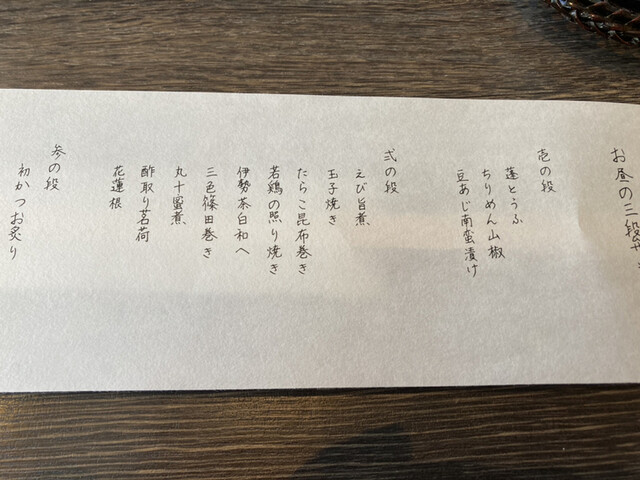 お昼の三段や
壱の段
蓬とうふ
ちりめん山椒
豆あじ南蛮漬け
弐の段
えび旨煮
玉子焼き
たらこ昆布巻き
若鶏の照り焼き
伊勢茶白和へ
三色篠田巻き
丸十蜜煮
酢取り茗荷
花蓮根
参の段
初かつお炙り